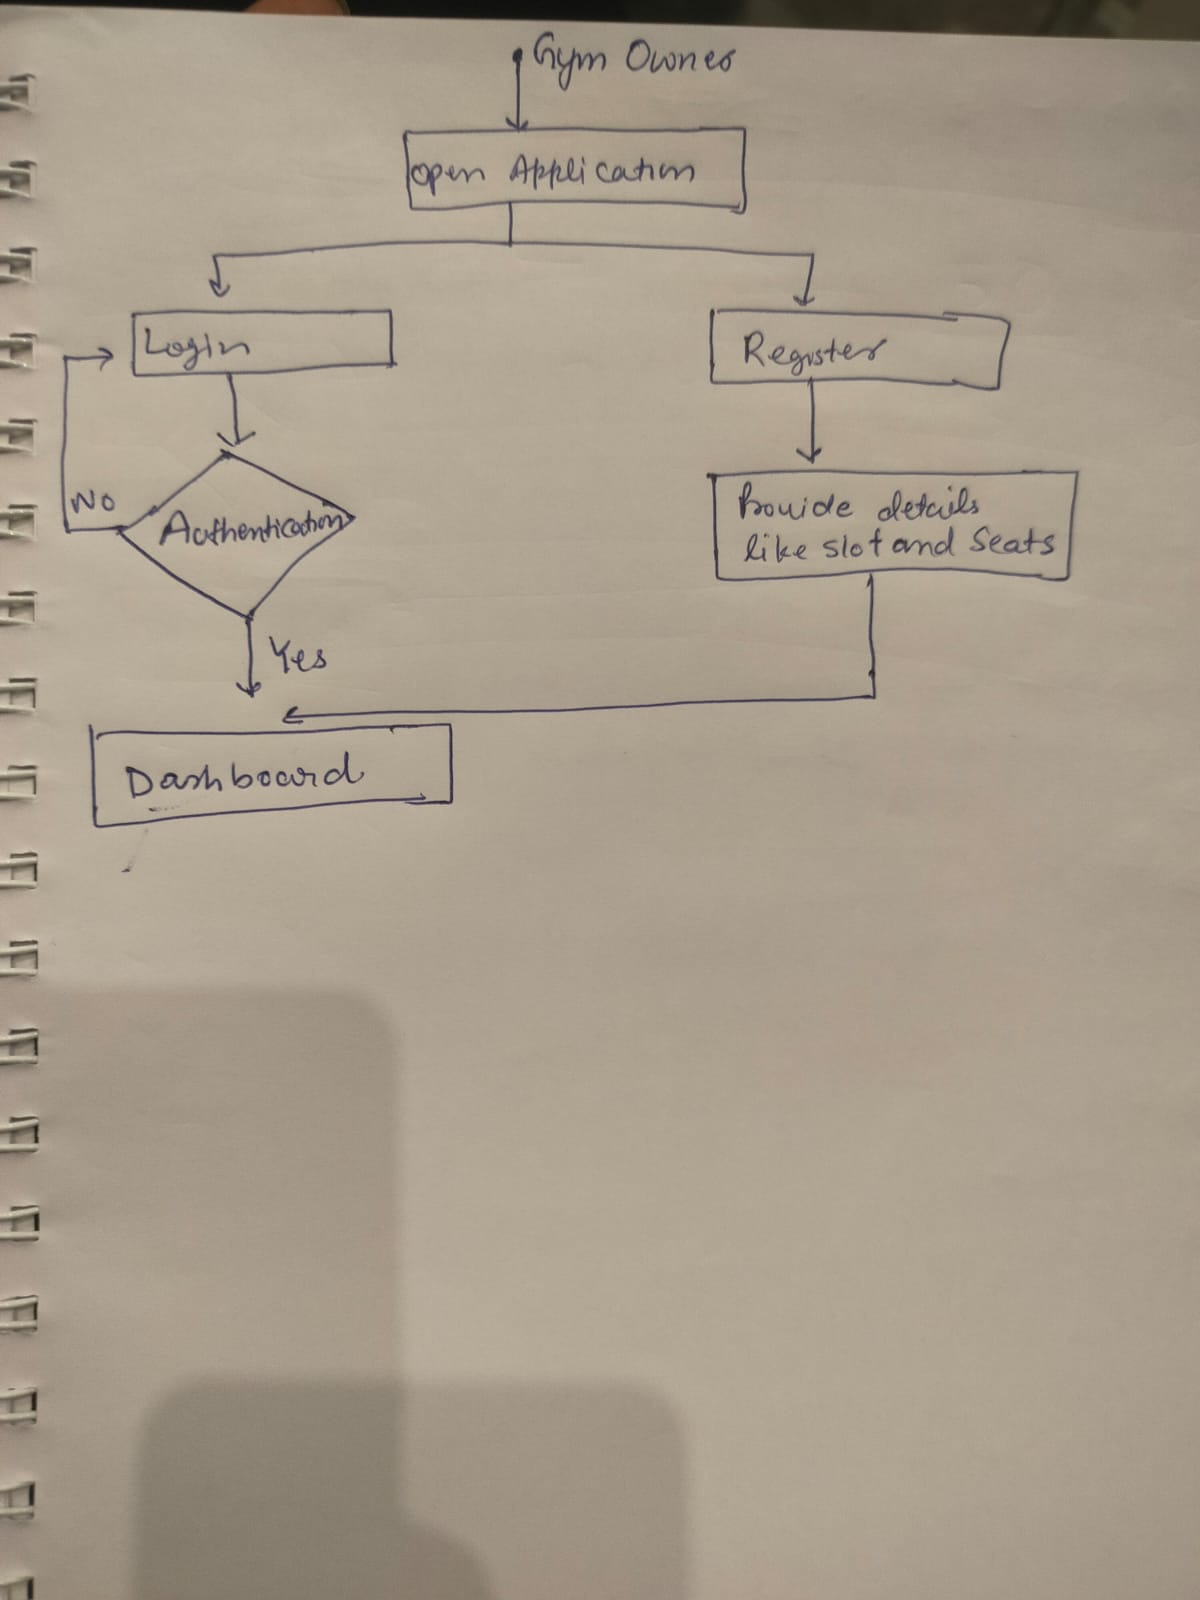 Gym Owner
Open Application
Login
Register
No
Authentication
Provide details
like slot and Seats
Yes
Dashboard